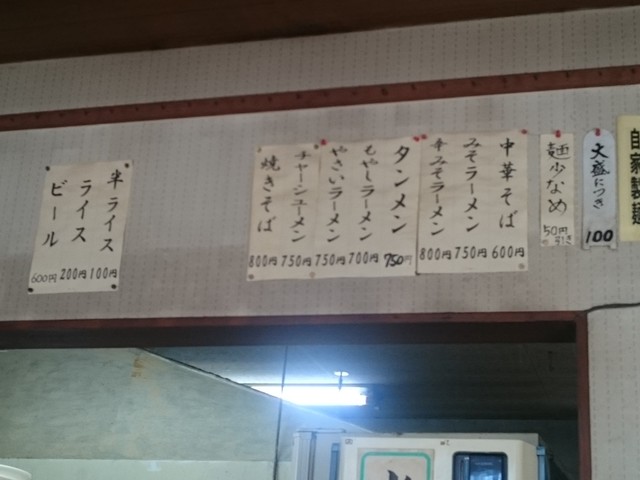 自家製麺
大盛につき
100
麺少なめ
50円
引き
中華そば
600円
みそラーメン
750円
辛みそラーメン
800円
タンメン
750円
もやしラーメン
700円
やさいラーメン
750円
チャーシューメン
750円
焼きそば
800円
半ライス
100円
ライス
200円
ビール
600円